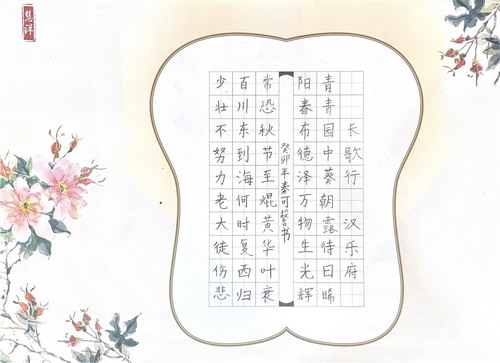 慧洋
长歌行 汉乐府
青青园中葵朝露待日晞
阳春布德泽万物生光辉
癸卯年秦可馨书
常恐秋节至焜黄华叶衰
百川东到海何时复西归
少壮不努力老大徒伤悲